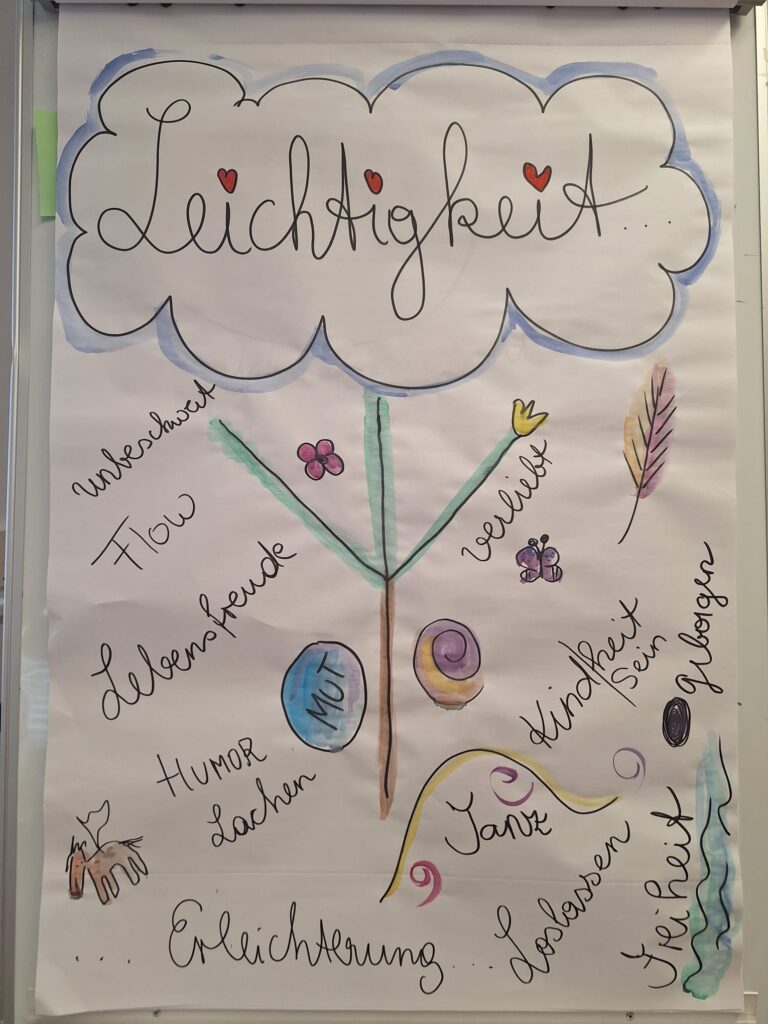 Leichtigkeit....
unbeschwert
Flow
verliebt
Lebensfreude
geborgen
Kind/heit
sein
MUT
HUMOR
Lachen
Tanz
Freiheit
.... Erleichterung...
Loslassen